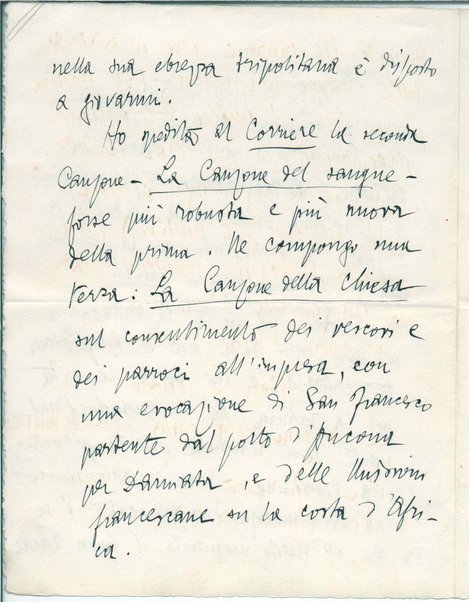 nella sua ebrezza tripolitana è disposto
a giovarmi.
Ho spedita al Corriere la seconda
Canzone - La Canzone del sangue -
forse più robusta e più nuova
della prima. Ne compongo una
terza: La Canzone della Chiesa
sul consentimento dei vescovi e
dei parroci all'impresa, con
una evocazione di San Francesco
partente dal porto d'Ancona
per Damiata, e delle Missioni
francescane su la costa d'Afri-
ca.